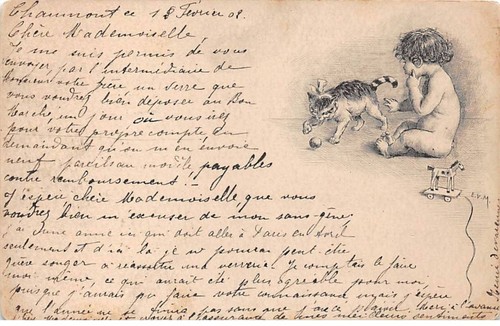 Chaumont ce 18 Février 02.
Chère Mademoiselle,
Je me suis permis de vous
envoyer par l'intermédiaire de
Monsieur votre frère un verre que
vous voudrez bien déposer au Bon
Marché, un jour où vous irez
pour votre propre compte, en
demandant qu'on m'en envoie
neuf pareils au modèle, payables
contre remboursement!
J'espère chère Mademoiselle, que vous
voudrez bien m'excuser de mon sans-gêne
j'ai une amie ici qui doit aller à Paris en Avril
seulement et d'ici là je ne pourrai peut-être
que songer à réassortir ma verrerie. Je comptais le faire
moi même, ce qui aurait été plus agréable pour moi,
puisque j'aurais pu faire votre connaissance, mais j'espère
que l'année ne finira pas sans que
l'assurance de mes meilleurs sentiments
E.V.M